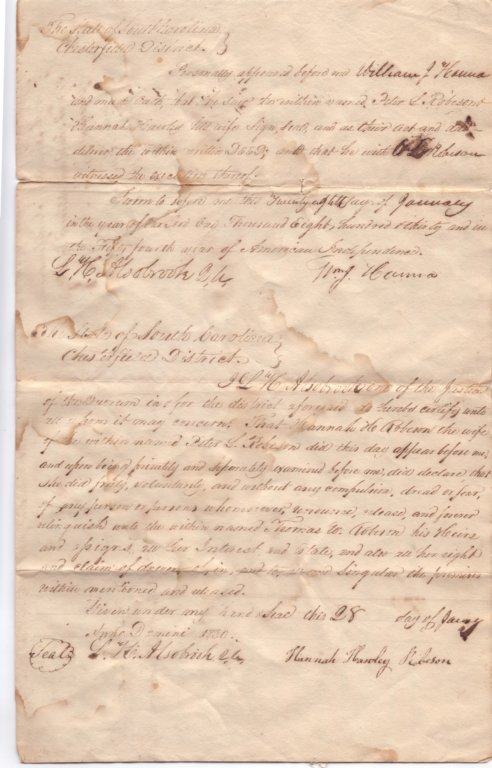 The State of South Carolina
Chesterfield District
Personally appeared before me William J Hanna
and made Oath, that he saw the within named Peter L Robeson
Hannah Hawley his wife sign, seal, and as their act and
deliver the within written Deed; and that he with Robeson
witnessed the execution thereof
Sworn to before me this Twenty eighth day of January
in the year of our Lord One Thousand Eight hundred & thirty and in
the Fifty fourth year of American Independence.
L. H. Alsobrook Q,U, Wm J. Hanna
State of South Carolina
Chesterfield District
I L H Alsobrook one of the Justices
of the Quorum in & for the district aforesaid do hereby certify unto
all whom it may concern, That Hannah H. Robeson the wife
of the within named Peter L. Robeson did this day appear before me,
and upon being privately and separately examined before me, did declare that
she did freely, voluntarily, and without any compulsion, dread or fear,
of any person or persons whomsoever, renounce, release, and forever
relinquish unto the within named Thomas W. Robeson his Heirs
and assigns, all her Interest and Estate, and also all her right
and claim of dower of, in, and to, all and Singular the premises
within mentioned and released.
Given under my hand & Seal this 28 day of Jany
Anno Domini 1830.
Seal L. H. Alsobrook Q,U, Hannah Hawley Robeson